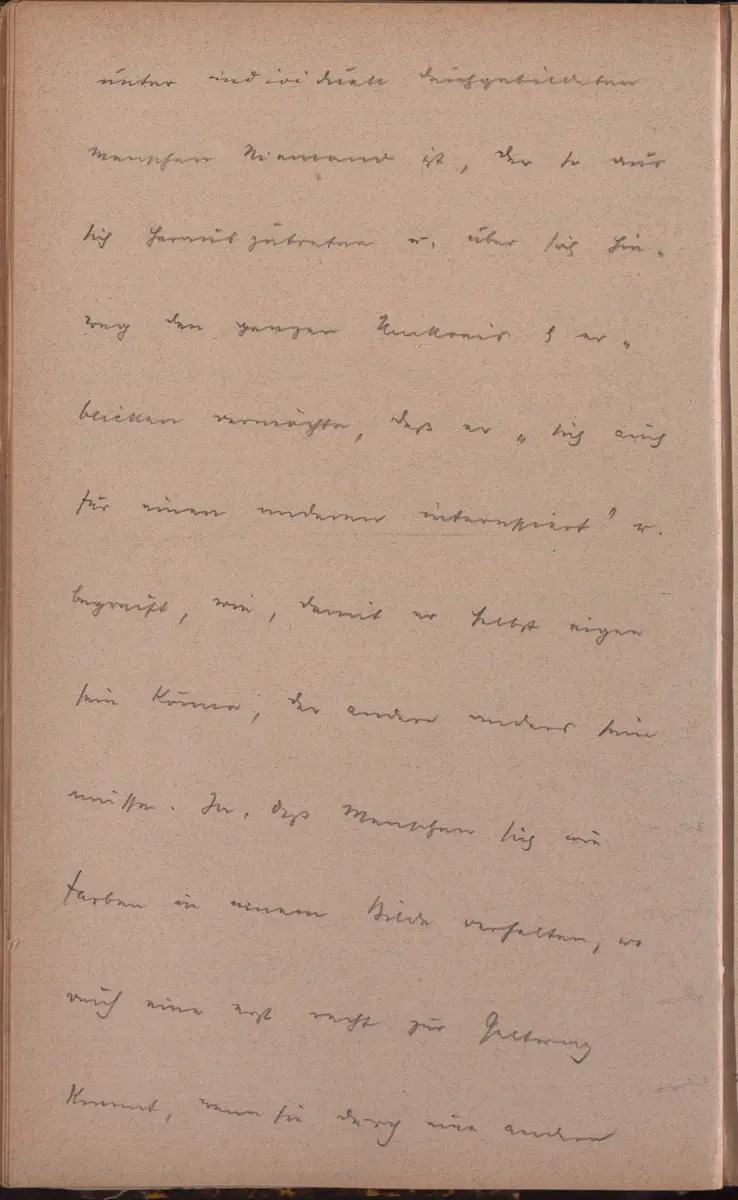 unter individuell durchgebildeten
Menschen Niemand ist, der so aus
sich herauszutreten u. über sich hin-
weg den ganzen Umkreis so er-
blicken vermöchte, daß er „sich auch
für einen anderen interessiert" u.
begreift, wie, damit er selbst eigen
sein könne, der andere anders sein
müsse. Ja, daß Menschen sich wie
Farben in einem Bilde verhalten, wo
auch eine erst recht zur Geltung
kommt, wenn sie durch eine andere